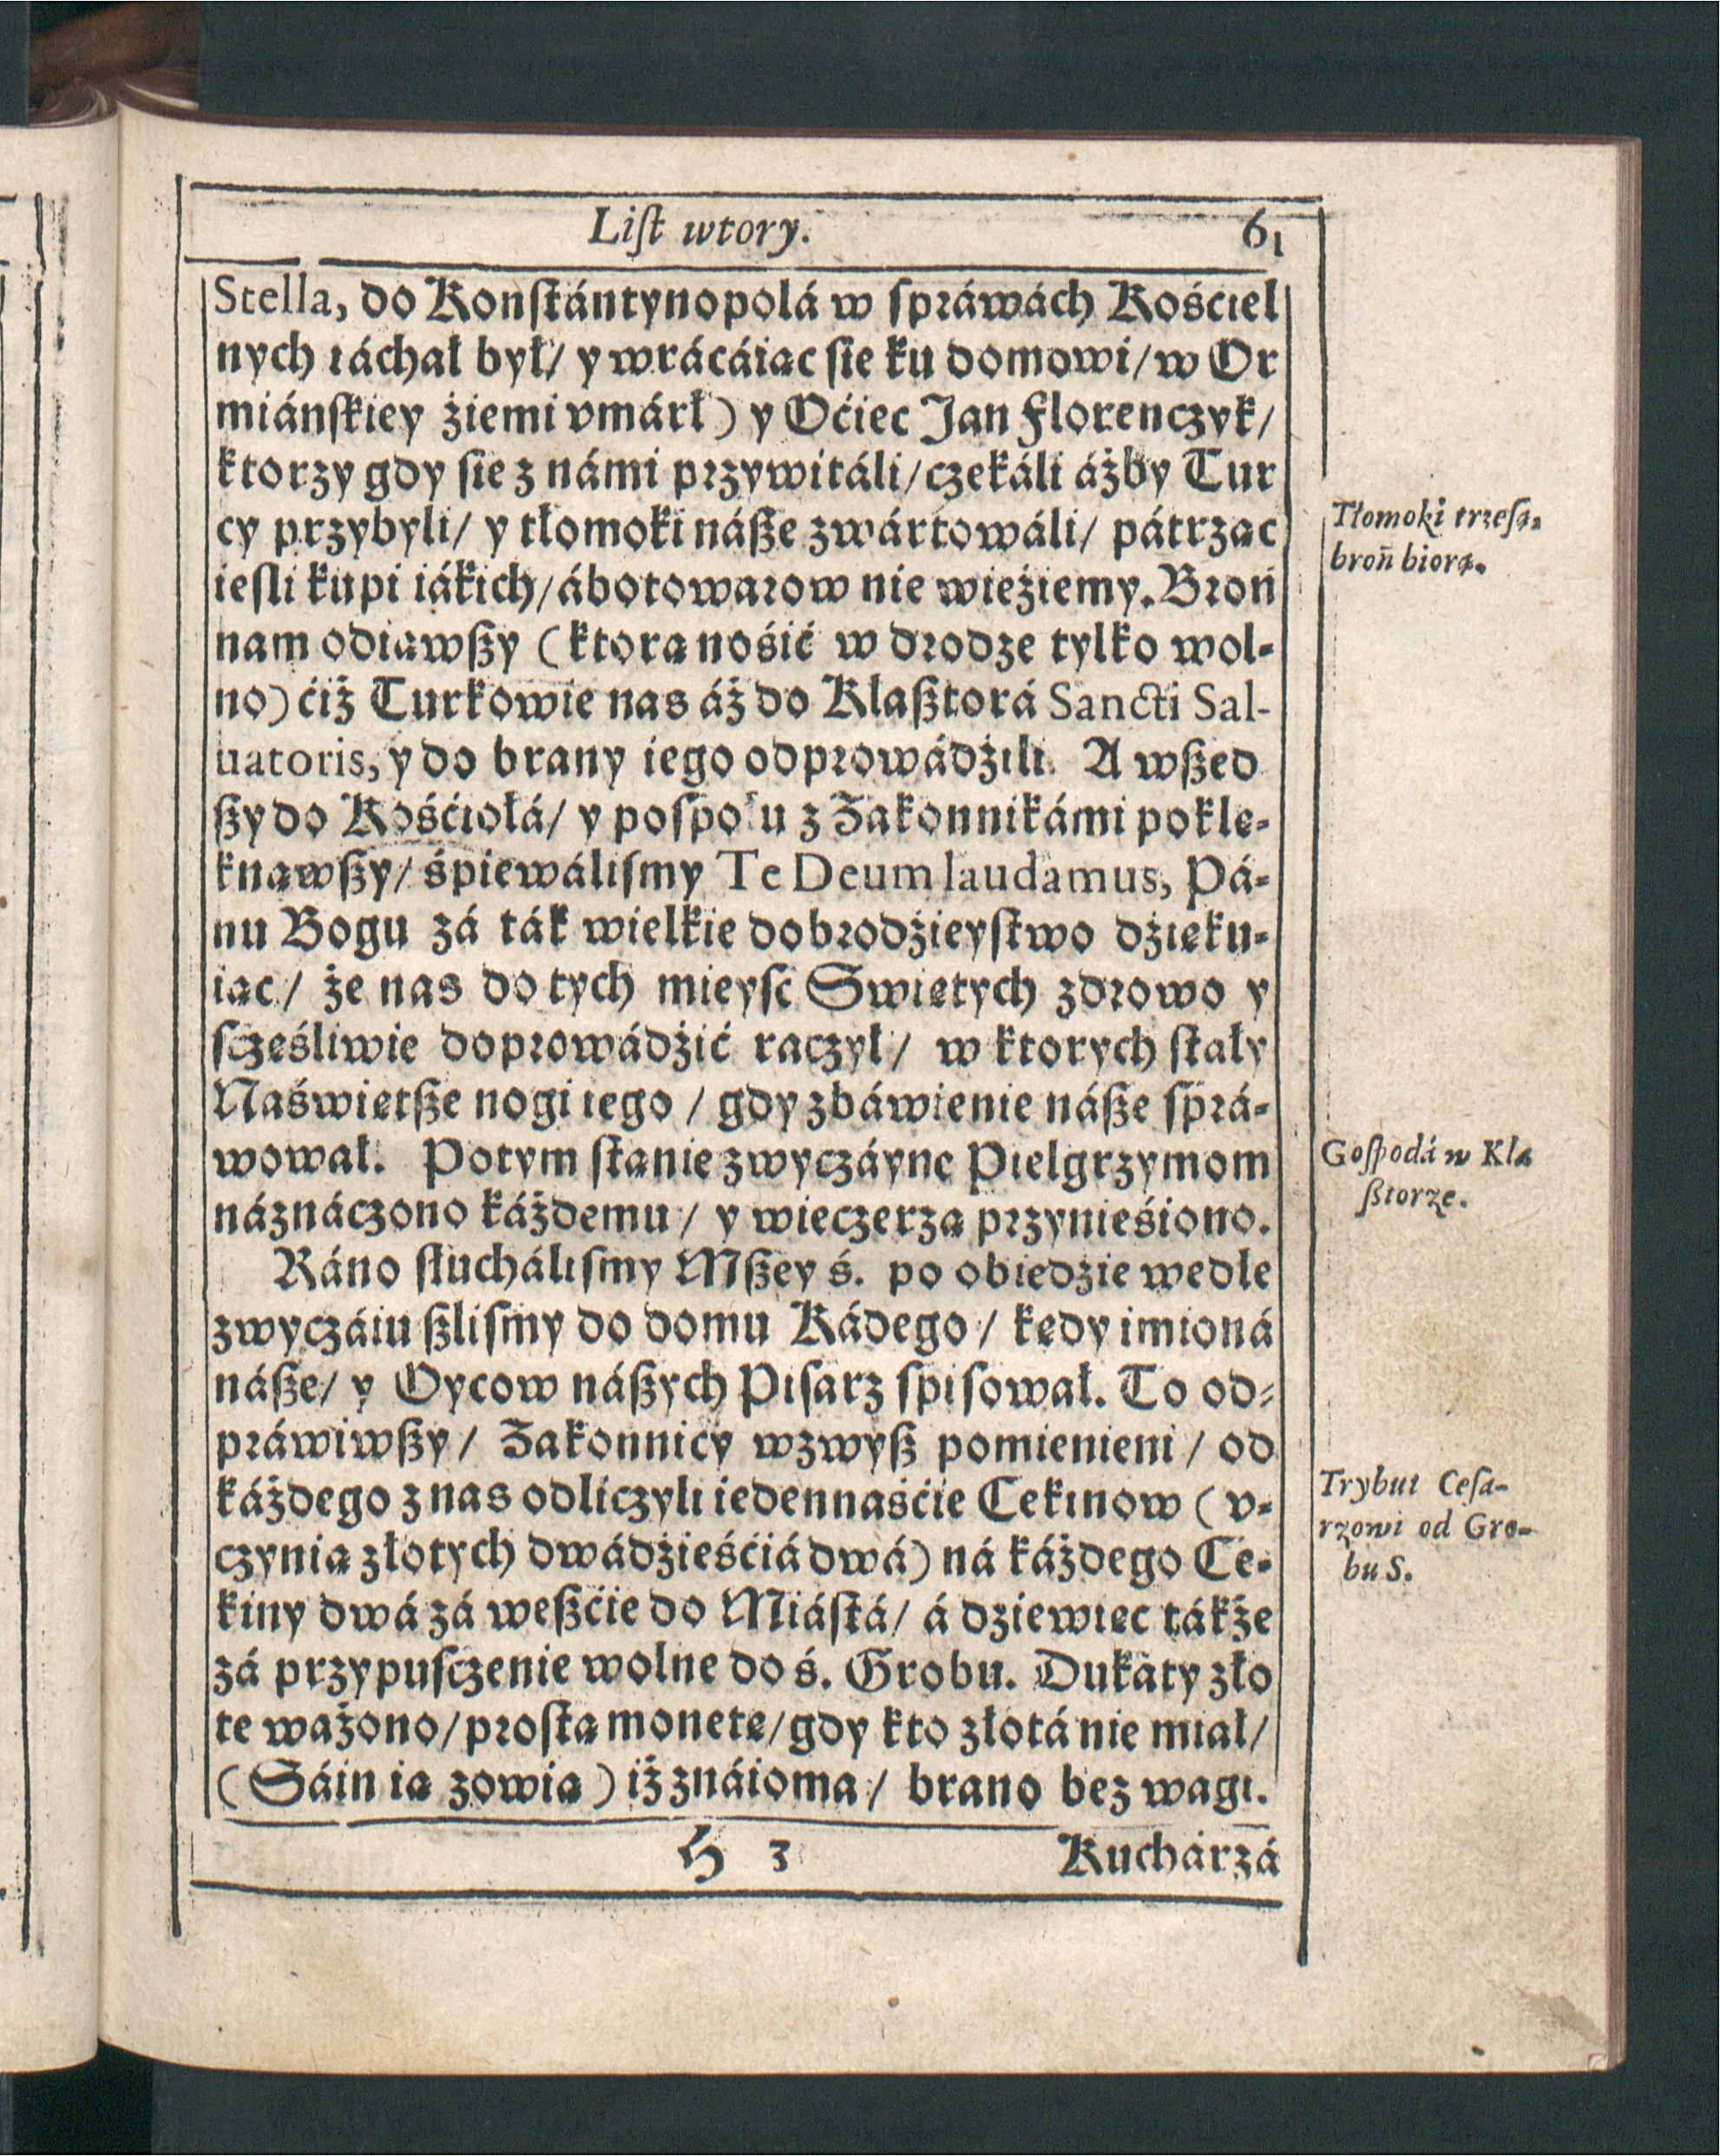 Liſt wtory. 61
Stella, do Konſtántynopolá w ſpráwách Kośćiel
nych iáchał był/ y wrácáiąc ſie ku domowi/ w Or
miáńſkiey źiemi vmárł) y Oćiec Jan Florenczyk/
ktorzy gdy ſie z námi przywitáli/ czekáli áżby Tur
cy przybyli/ y tłomoki náße zwártowáli/ pátrząc
ieſli kupi iákich/ ábo towarow nie wieźiemy. Broń
nam odiąwßy (ktorą nośić w drodze tylko wol-
no) ćiż Turkowie nas áż do Klaßtorá Sancti Sal-
uatoris, y do brany iego odprowádźili. A wßed
ßy do Kośćiołá/ y poſpołu z Zakonnikámi poklę-
knąwßy/ śpiewáliſmy Te Deum laudamus, Pá-
nu Bogu zá ták wielkie dobrodźieyſtwo dźięku-
iąc/ że nas do tych mieyſc Swiętych zdrowo y
ſczęśliwie doprowádźić raczył/ w ktorych ſtały
Naświętße nogi iego / gdy zbáwienie náße ſprá-
wował. Potym ſtanie zwyczáyne Pielgrzymom
náznáczono káżdemu/ y wieczerzą przynieśiono.
Ráno ſłucháliſmy Mßey ś. po obiedźie wedle
zwyczáiu ßliſmy do domu Kádego/ kędy imioná
náße/ y Oycow náßych Piſarz ſpiſował. To od-
práwiwßy/ Zakonnicy wzwyß pomienieni/ od
káżdego z nas odliczyli iedennaśćie Cekinow (v-
czynią złotych dwádźieśćiá dwá) ná káżdego Ce-
kiny dwá zá weßćie do Miáſtá/ á dziewięc tákże
zá przypuſczenie wolne do ś. Grobu. Dukaty zło
te ważono/ proſtą monetę/ gdy kto złotá nie miał/
(Sáin ią zowią) iż znáioma/ brano bez wagi.
H 3 Kucharzá
Tłomoki trzeſą,
broń biorą.
Goſpodá w Kla
ßtorze.
Trybut Ceſa-
rzowi od Gro-
bu S.